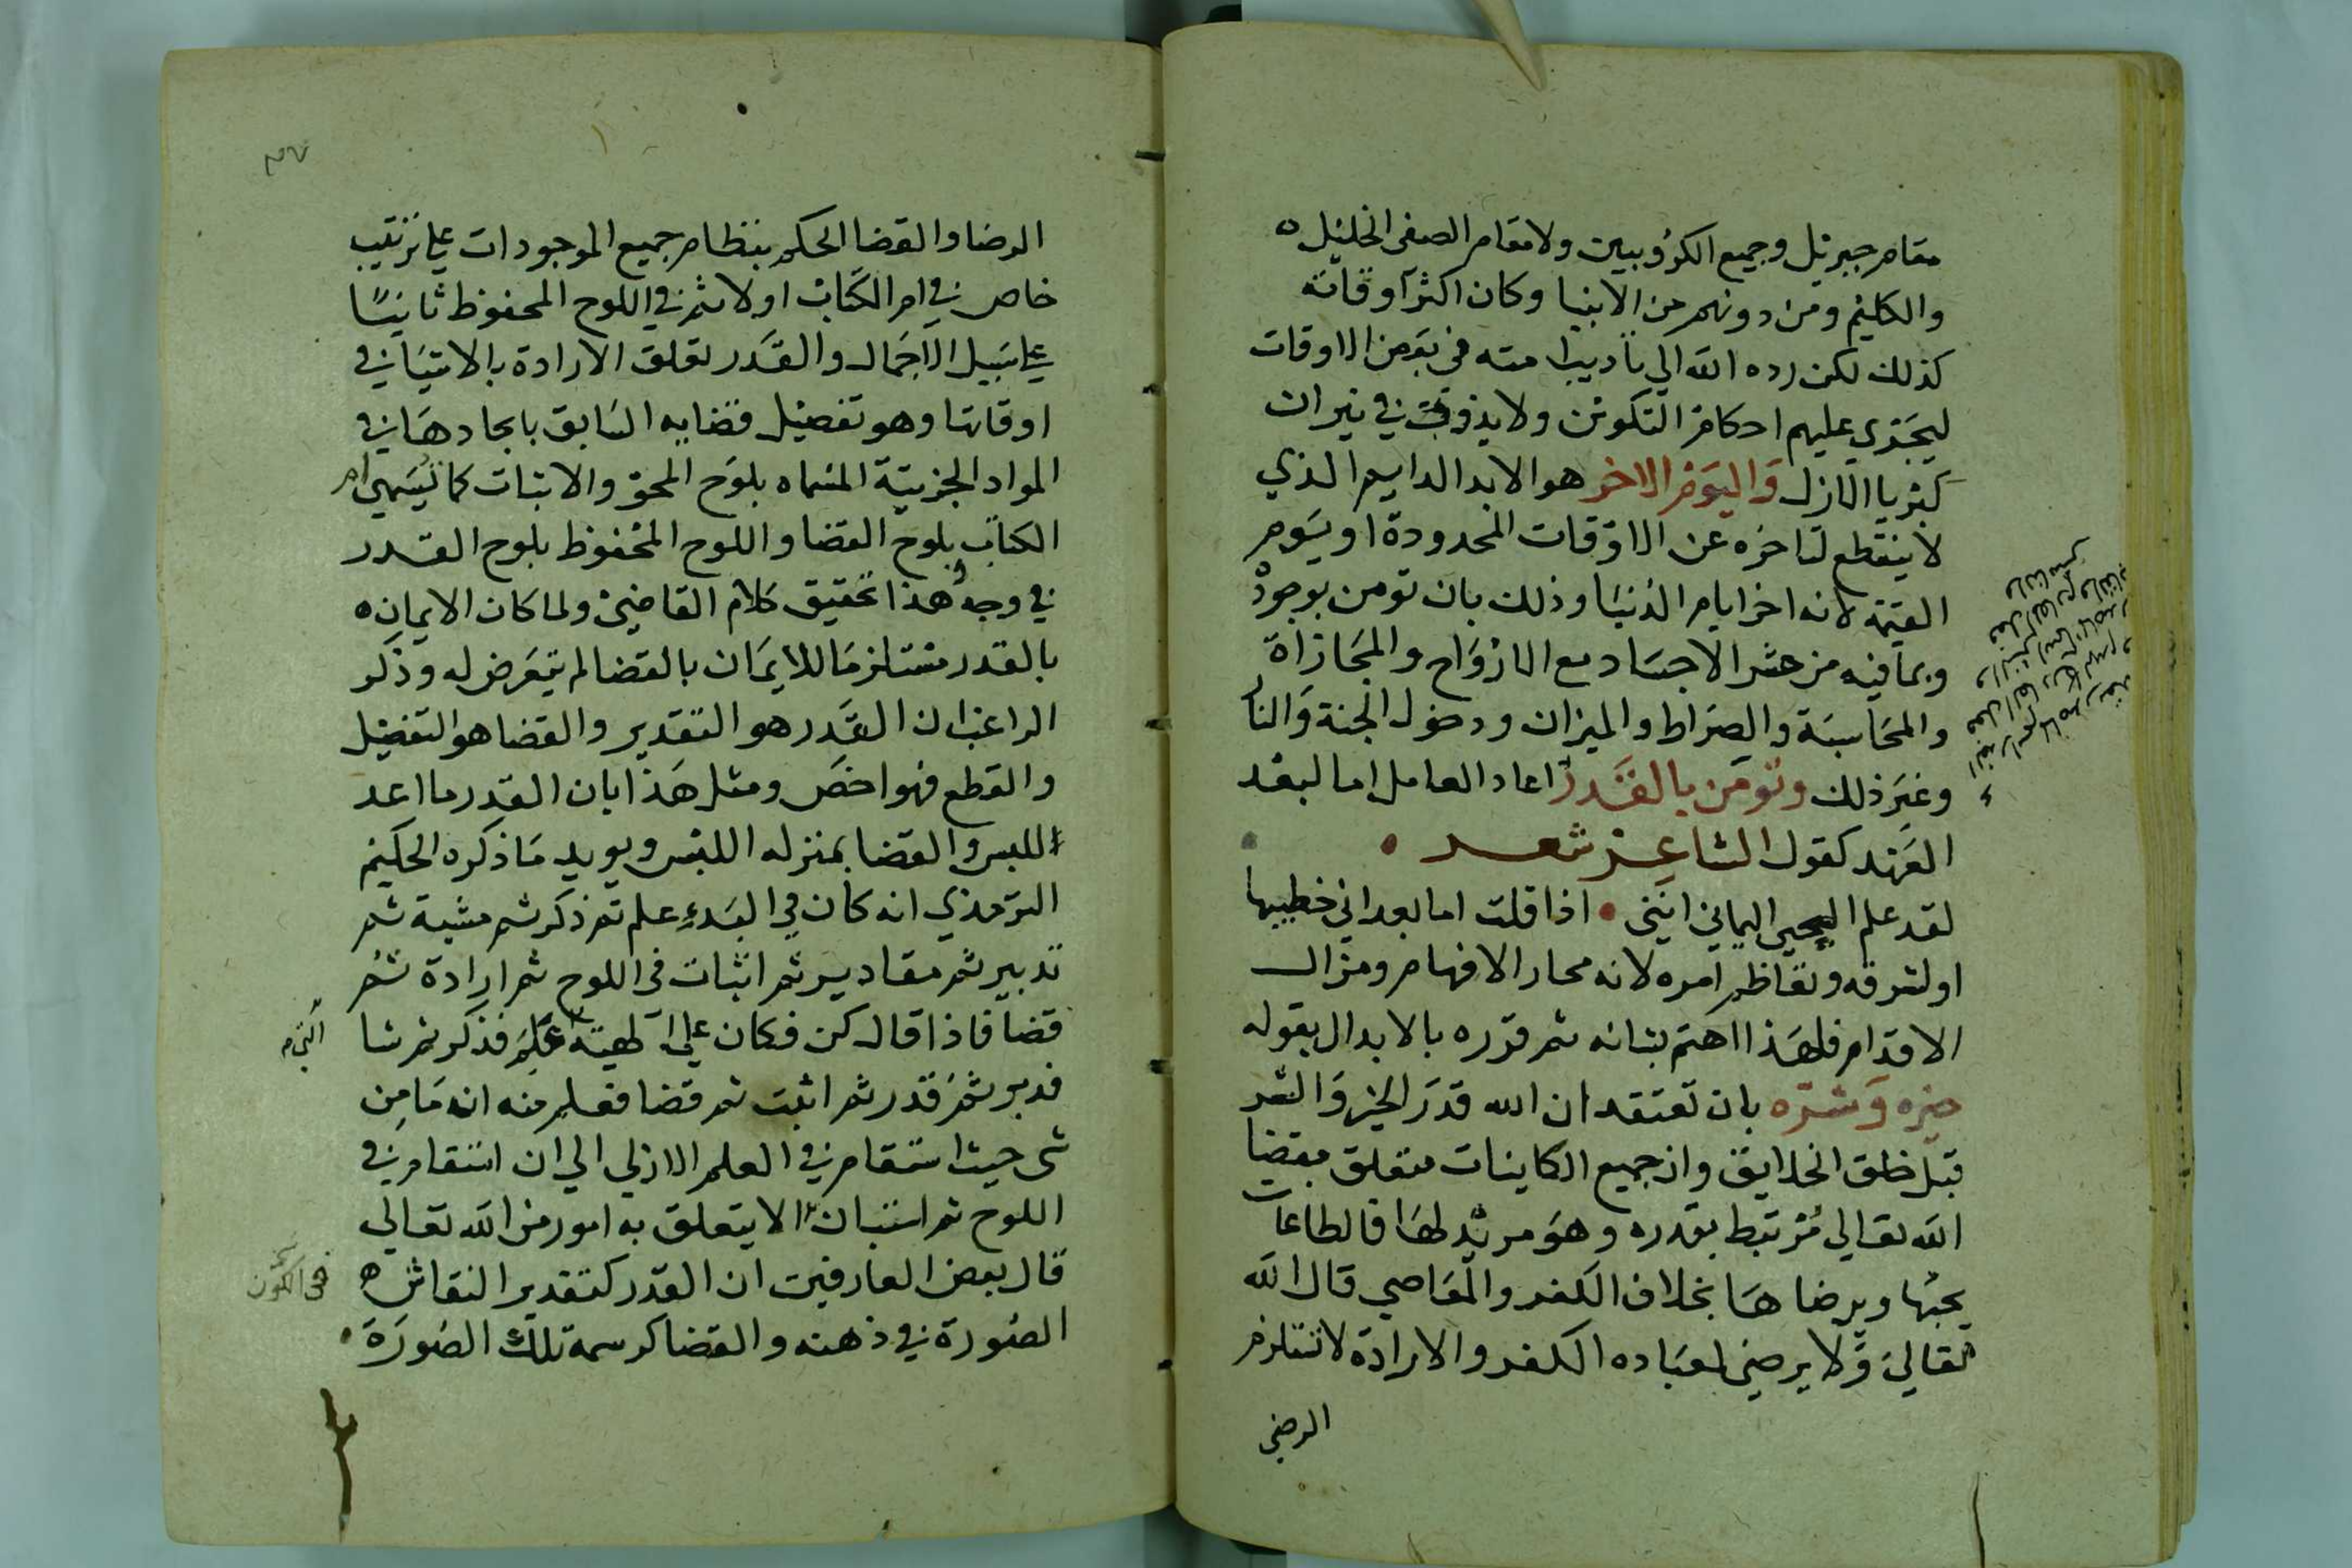 مقام جبريل وجميع الكروبيين ولا مقام الصفى الخليل ه
والكليم ومن دونهم من الانبيا وكان اكثر اوقاته
كذلك لكن رده الله الي تاديب امته في بعض الاوقات
ليجري عليهم احكام التكوين ولا يذوبت في نيران
كبريا الازل وَاليَوم الاخر هو الابد الدايم الذي
لا ينقطع لتاخره عن الاوقات المحدودة او يَوم
القيمة لانه اخر ايام الدُنيَا وذلك بان تومن بوجود
وبما فيه من حشر الاجسَاد مع الارْوَاح والمجَازاة
والمحَاسبَة والصرَاط والميزان ودخول الجنة وَالنا
وغيرَ ذلك وتومَن بالقَدر اعاد العامل اما لبعْد
العَهْد كقول الشاعر شعر
لقد علم الحي اليماني انني اذا قلت اما بعد اني خطيبها
او لشرفه وتعاظم امره لانه محار الافهام ومزال
الاقدام فلهَذا اهتم بشانه ثم قرره بالابدال بقوله
خيره وَشرّه بان تعتقد ان الله قدَر الخير وَالشر
قبْل خلق الخلايق وان جميع الكاينات متعلق بقضا
الله تعالي مُرتبط بقدره وهوَ مريد لهَا فالطاعات
يحبُها ويرضاهَا بخلاف الكفر والمعَاصي قال الله
تعالي وَلا يرضي لعبَاده الكفر والارادة لا تستلزم
الرضي
الرضا والقضا الحكم بنظام جميع الموجودات علي ترتيب
خاص في ام الكتاب اولا ثم في اللوح المحفوظ ثانيًا
علي سَبيل الاجمَال والقدَر تعلق الارادة بالاشيَا في
اوقاتها وهو تفصيل قضايه السَابق بايجادهَا في
المواد الجزيية المسَماه بلوَح المحو والاثبات كما يُسَمي ام
الكتاب بلوح القضا واللوح المحفوظ بلوح القدر
في وجه هذا تحقيق كلام القاضي ولما كان الايمان ه
بالقدر مستلزمَا للايمَان بالقضا لم يتعرَض له وذكر
الراغب ان القدَر هو التقدير والقضا هو التفصيل
والقطع فهو اخصَ ومثل هَذا بان القدَر ما اعد
للبس والقضا بمنزله اللبْس ويويد مَا ذكره الحكيم
الترمذي انه كان في البَدءِ علم ثم ذكر ثم مشية ثم
تدبير ثم مقادير ثم اثبات في اللوح ثم ارادة ثم
قضا فاذا قال كن فكان علي الهيئة علم فذكر ثم شا
فدبر ثم قدر ثم اثبت ثم قضا فعلم منه انه مَا مِن
شي حيث استقام في العلم الازلي الي ان استقام في
اللوح ثم استبان الا يتعلق به امور من الله تعالي
قال بعض العارفين ان القدر كتقدير النقاش ه
في الكون
الصُورة في ذهنه والقضا كرسمه تلك الصُورَة